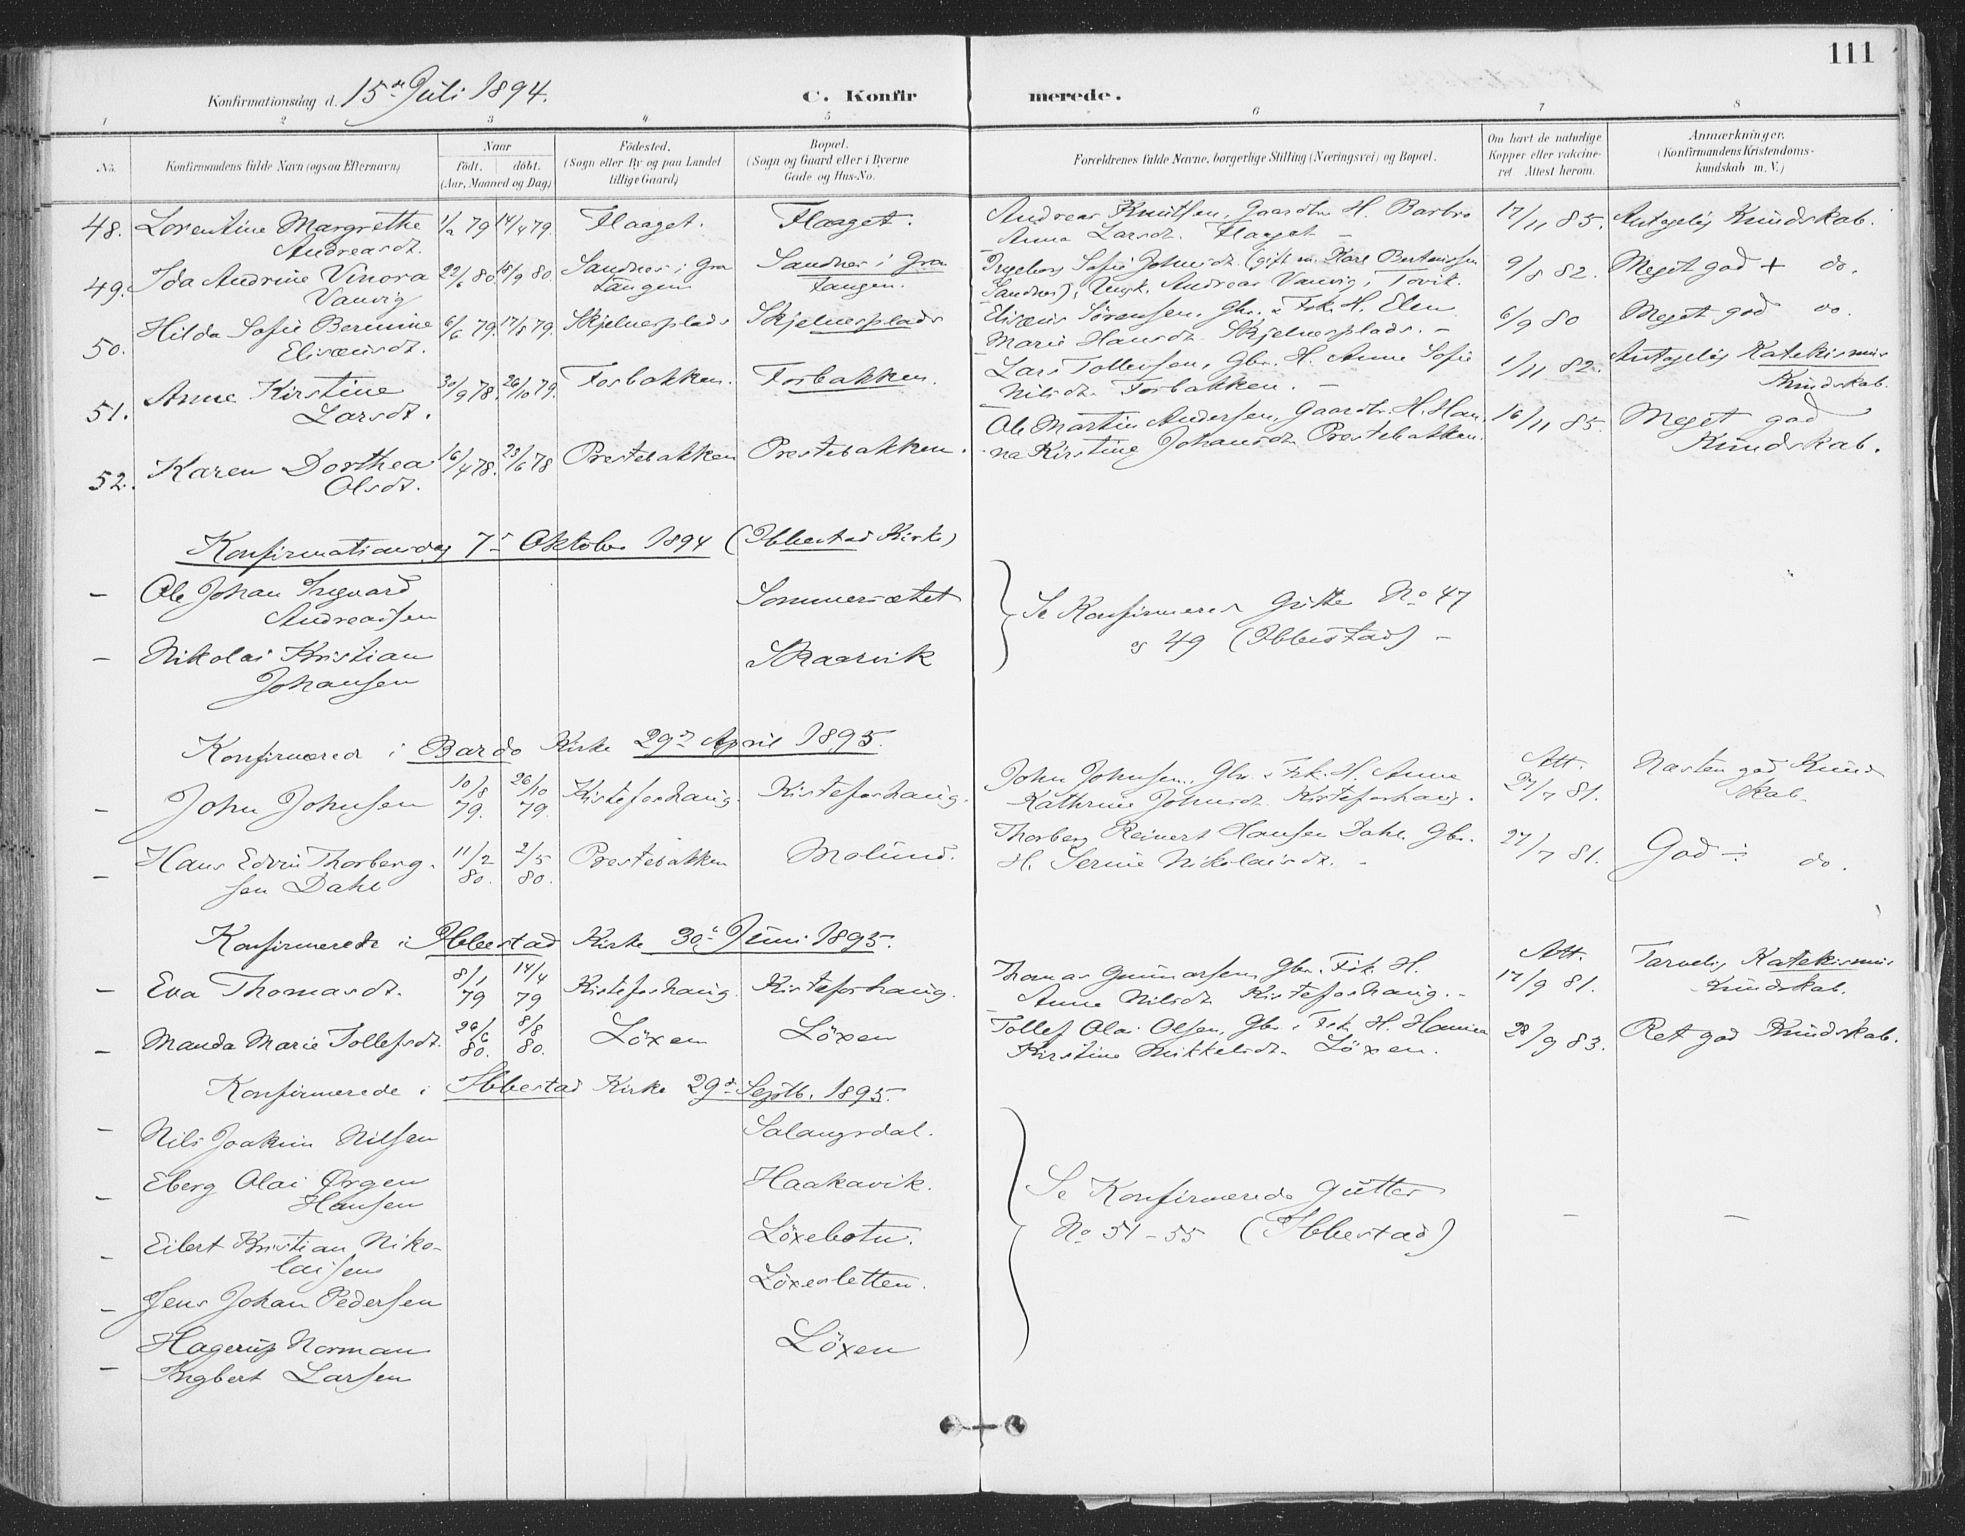 111
Konfirmationsdag d. 15de Juli 1894. C. Konfir merede.
1 2 3 4 5 6 7 8
No. Konfirmandens fulde Navn (ogsaa Efternavn) Naar født. døbt. (Aar, Maaned og Dag) Fødested. (Sogn eller By og paa Landet tillige Gaard) Bopæl. (Sogn og Gaard eller i Byerne Gade og Hus-No. Forældrenes fulde Navne, borgerlige Stilling (Næringsvei) og Bopæl. Om havt de naturlige Kopper eller vakcineret Attest herom. Anmærkninger. (Konfirmandens Kristendomskundskab m. V.)
48. Lorentine Margrethe 1/2 79 14/4 79 Flaaget. Flaaget. Andreas Knutsen, Gaardbr. H. Barbro 17/11 85. Antagelig Kundskab.
Andreasdt. Anna Larsdt. Flaaget –
49. Ida Andrine Vinora 22/6 80 15/9 80 Sandnes i Gra Sandnes i Gra Ingeborg Sofie Johnsdt. (gift m. Karl Bertinussen 9/8 82. Meget god + do.
Vanvig tangen tangen. Sandnes), Ungk. Andreas Vanvig, Tovik.
50. Hilda Sofie Bermine 6/6 79. 17/8 79. Skjelnesplads Skjelnesplads Elisæus Sørensen, Gbr. & Fsk. H. Elen 6/9 80 Meget god do.
Elisæusdt. Marie Hansdt. Skjelnesplads. –
51. Anne Kirstine 30/9 78. 26/10 79. Fosbakken. Fosbakken. Lars Tollefsen, Gbr. H. Anne Sofie 1/11 82. Antagelig Katekismus
Larsdt. Nilsdt. Fosbakken. – Kundskab.
52. Karen Dorthea 16/4 78. 23/6 78 Prestebakken Prestebakken. Ole Martin Andersen, Gaardbr. H. Han 16/11 85. Meget god
Olsdt. na Kirstine Johansdt. Prestebakken. Kundskab.
Konfirmationsdag 7de Oktober 1894 (Ibbestad Kirke)
– Ole Johan Ingvard Sommersætet Se Konfirmerede Gutter No 47
Andreassen og 49 (Ibbestad) –
– Nikolai Kristian Skaarvik
Johansen
Konfirmered i Bardo Kirke 29de April 1895.
– John Johnsen 10/8 79. 26/10 79. Kisteforshaug. Kisteforshaug. John Johnsen, Gbr. & Fsk. H. Anne Att. 27/7 81. Næsten god Kund
Kathrine Johnsdt. Kisteforshaug. skab.
– Hans Edvin Thorberg- 11/2 80. 2/5 80. Prestebakken Molund. Thorberg Reinert Hansen Dahl Gbr. 27/7 81. God ÷ do.
sen Dahl H. Serine Nikolaisdt. –
Konfirmerede i Ibbestad Kirke 30te Juni 1895.
– Eva Thomasdt. 8/1 79 14/4 79 Kisteforshaug. Kisteforshaug. Thomas Gunnarsen, Gbr. Fsk. H. Att. 17/9 81. Tarvelig Katekismus
Anne Nilsdt. Kisteforshaug. – Kundskab.
– Manda Marie Tollefsdt. 26/6 80. 8/8 80. Löxen Löxen Tollef Olai Olsen, Gbr. & Fsk. H. 28/9 83. Ret god Kundskab.
Kirstine Mikkelsdt. Löxen.
Konfirmerede i Ibbestad Kirke 29de Septb. 1895.
– Nils Joakim Nilsen Salangsdal.
– Eberg Olai Ørgen Haakavik. Se Konfirmerede Gutter
Hansen No 51–55 (Ibbestad) – –
– Eilert Kristian Niko- Löxebotn.
laisen
– Jens Johan Pedersen Löxesletten.
– Hagerup Norman Löxen
Ingbert Larsen